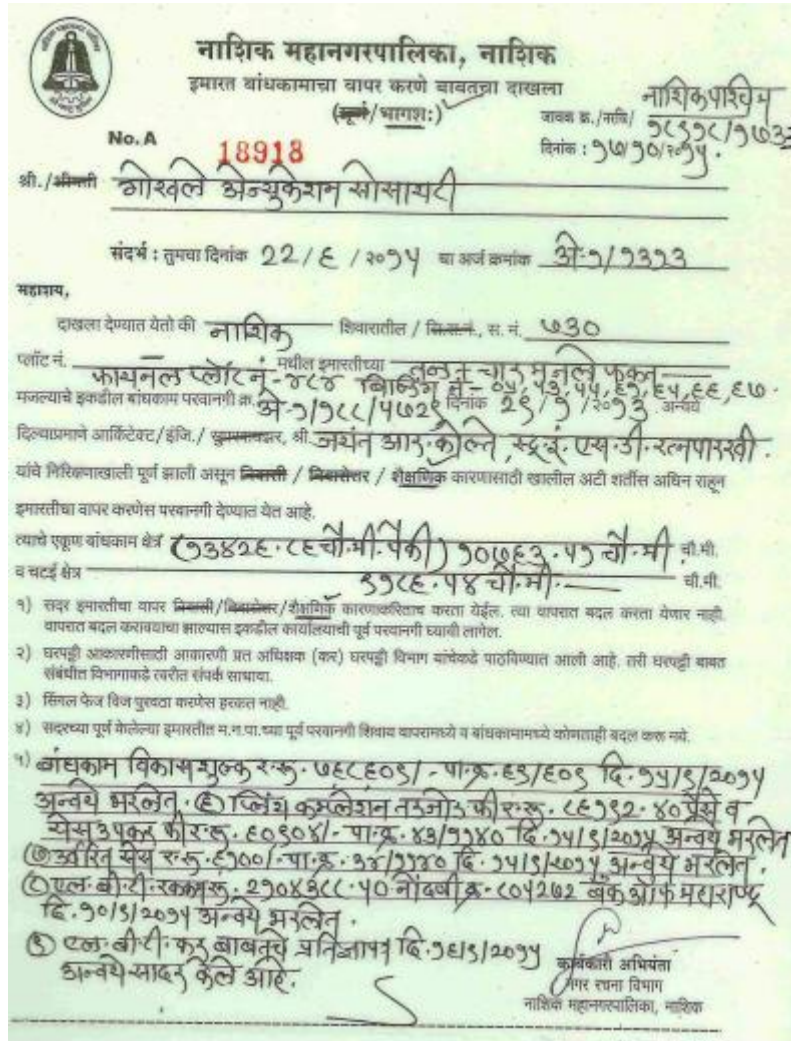 नाशिक महानगरपालिका, नाशिक
इमारत बांधकामाचा वापर करणे बाबतचा दाखला
(पूर्ण/भागशः)
नाशिक पश्चिम
जावक क्र./नरवि/ १८९१८/१७३३
No. A 18918
दिनांक : १७/१०/२०१५.
श्री./श्रीमती गोखले अेज्युकेशन सोसायटी
संदर्भ : तुमचा दिनांक 22/६/२०१५ चा अर्ज क्रमांक अे-१/१३१३
महाशय,
दाखला देण्यात येतो की नाशिक शिवारातील / सि.स.नं., स. नं. ७३०
प्लॉट नं. फायनल प्लॉट नं-४८४ मधील इमारतीच्या तळ + चार मजले फक्त
बिल्डिंग नं-
मजल्याचे इकडील बांधकाम परवानगी क्र. अे-१/१८८/५७२९ दिनांक २९/१/२०१३ अन्वये
दिल्याप्रमाणे आर्किटेक्ट/इंजि./ सुपरवायझर, श्री. जयंत आर. कोल्ते, स्ट्र. इं. एस. डी. रत्नपारखी.
यांचे निरिक्षणाखाली पूर्ण झाली असून निवासी / निवासेत्तर / शैक्षणिक कारणासाठी खालील अटी शर्तीस अधिन राहून
इमारतीचा वापर करणेस परवानगी देण्यात येत आहे.
त्याचे एकूण बांधकाम क्षेत्र (१३४२६.८६ चौ.मी. पैकी) १०७६३.५१ चौ.मी. चौ.मी.
व चटई क्षेत्र ९१८६.५४ चौ.मी. चौ.मी.
१) सदर इमारतीचा वापर निवासी/निवासेत्तर/शैक्षणिक कारणाकरिताच करता येईल. त्या वापरात बदल करता येणार नाही.
वापरात बदल करावयाचा झाल्यास इकडील कार्यालयाची पूर्व परवानगी घ्यावी लागेल.
२) घरपट्टी आकारणीसाठी आकारणी प्रत अधिक्षक (कर) घरपट्टी विभाग यांचेकडे पाठविण्यात आली आहे. तरी घरपट्टी बाबत
संबंधीत विभागाकडे त्वरीत संपर्क साधावा.
३) सिंगल फेज विज पुरवठा करणेस हरकत नाही.
४) सदरच्या पूर्ण केलेल्या इमारतीत म.न.पा.च्या पूर्व परवानगी शिवाय वापरामध्ये व बांधकामामध्ये कोणताही बदल करू नये.
५) बांधकाम विकास शुल्क र.रू. ७६८६०९/- पा.क्र. ६९/६०९ दि. १५/९/२०१५
अन्वये भरलेत. (६) प्लिंथ कम्प्लेशन तडजोड फी र.रू. ८६१९२.४० पैसे व
सेस उपकर फी र.रू. ६०९०४/- पा.क्र. ४३/११४० दि. १५/९/२०१५ अन्वये भरलेत
(७) उर्वरित सेस र.रू. ६१००/- पा.क्र. ३४/११४० दि. १५/९/२०१५ अन्वये भरलेत.
(८) एल.बी.टी. रक्कम रू. २१०४३८८.५० नोंदणी क्र. ८०४२७२ बँक ऑफ महाराष्ट्र
दि. १०/९/२०१५ अन्वये भरलेत.
(९) एल.बी.टी. कर बाबतचे प्रतिज्ञापत्र दि. १६/९/२०१५
अन्वये सादर केले आहे.
कार्यकारी अभियंता
नगर रचना विभाग
नाशिक महानगरपालिका, नाशिक